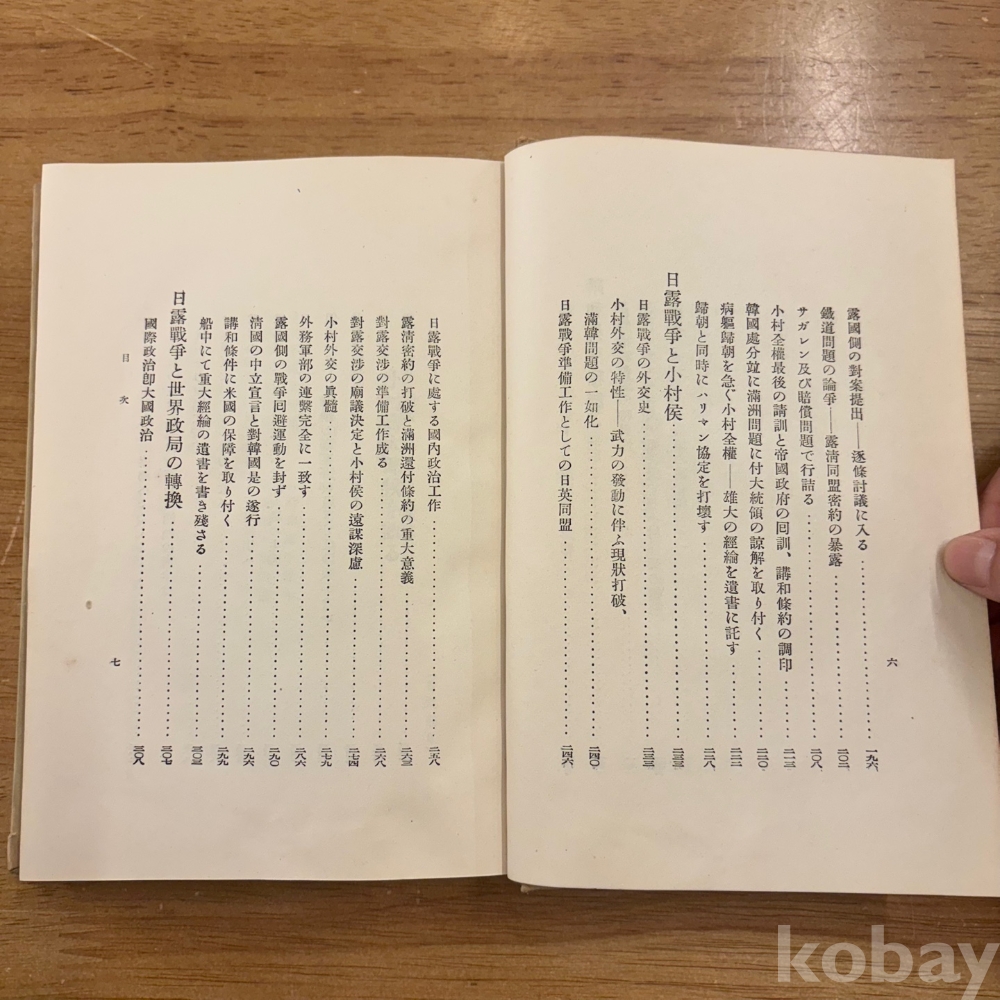 露國側の對案提出——逐條討議に入る……一九六
鐵道問題の論爭——露淸同盟密約の暴露……二〇二
サガレン及び賠償問題で行詰る……二〇八
小村全權最後の請訓と帝國政府の囘訓、講和條約の調印……二一三
韓國處分竝に滿洲問題に付大統領の諒解を取り付く……二二〇
病軀歸朝を急ぐ小村全權——雄大の經綸を遺書に託す……二二二
歸朝と同時にハリマン協定を打壞す……二二八
日露戰爭と小村侯……二三三
日露戰爭の外交史……二三三
小村外交の特性——武力の發動に伴ふ現狀打破、
滿韓問題の一如化……二四〇
日露戰爭準備工作としての日英同盟……二四六
六
日露戰爭に處する國內政治工作……二五八
露淸密約の打破と滿洲還付條約の重大意義……二六三
對露交涉の準備工作成る……二六八
對露交涉の廟議決定と小村侯の遠謀深慮……二七四
小村外交の眞髓……二七九
外務軍部の連繫完全に一致す……二八六
露國側の戰爭囘避運動を封ず……二九〇
淸國の中立宣言と對韓國是の遂行……二九六
講和條件に米國の保障を取り付く……二九九
船中にて重大經綸の遺書を書き殘さる……三〇三
日露戰爭と世界政局の轉換……三〇七
國際政治卽大國政治……三〇八
目次
七
kobay